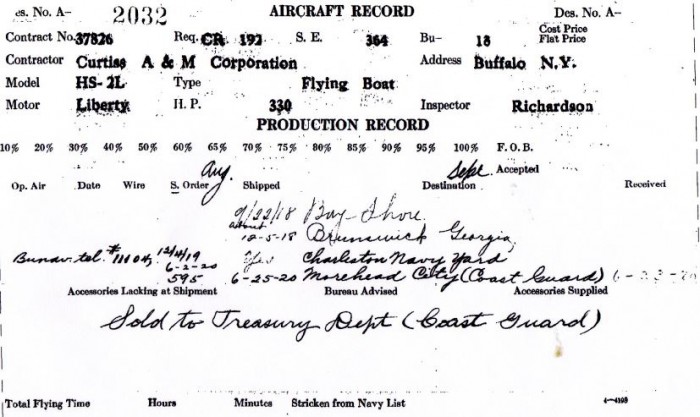 es. No. A– 2032 AIRCRAFT RECORD Des. No. A–
Contract No. 37826 Req. CR 192 S. E. 364 Bu– 18 Cost Price
Flat Price
Contractor Curtiss A & M Corporation Address Buffalo N.Y.
Model HS-2L Type Flying Boat
Motor Liberty H. P. 330 Inspector Richardson
PRODUCTION RECORD
10% 20% 30% 40% 50% 60% 65% 70% 75% 80% 85% 90% 95% 100% F. O. B.
Aug. Sept. Accepted
Op. Air Date Wire S. Order Shipped Destination Received
9/22/18 Bay Shore
about
12-5-18 Brunswick Georgia
Bunav. tel. 12/4/19 Charleston Navy Yard
6-2-20
595 6-25-20 Morehead City (Coast Guard)
Accessories Lacking at Shipment Bureau Advised Accessories Supplied
Sold to Treasury Dept (Coast Guard)
Total Flying Time Hours Minutes Stricken from Navy List 4—4198